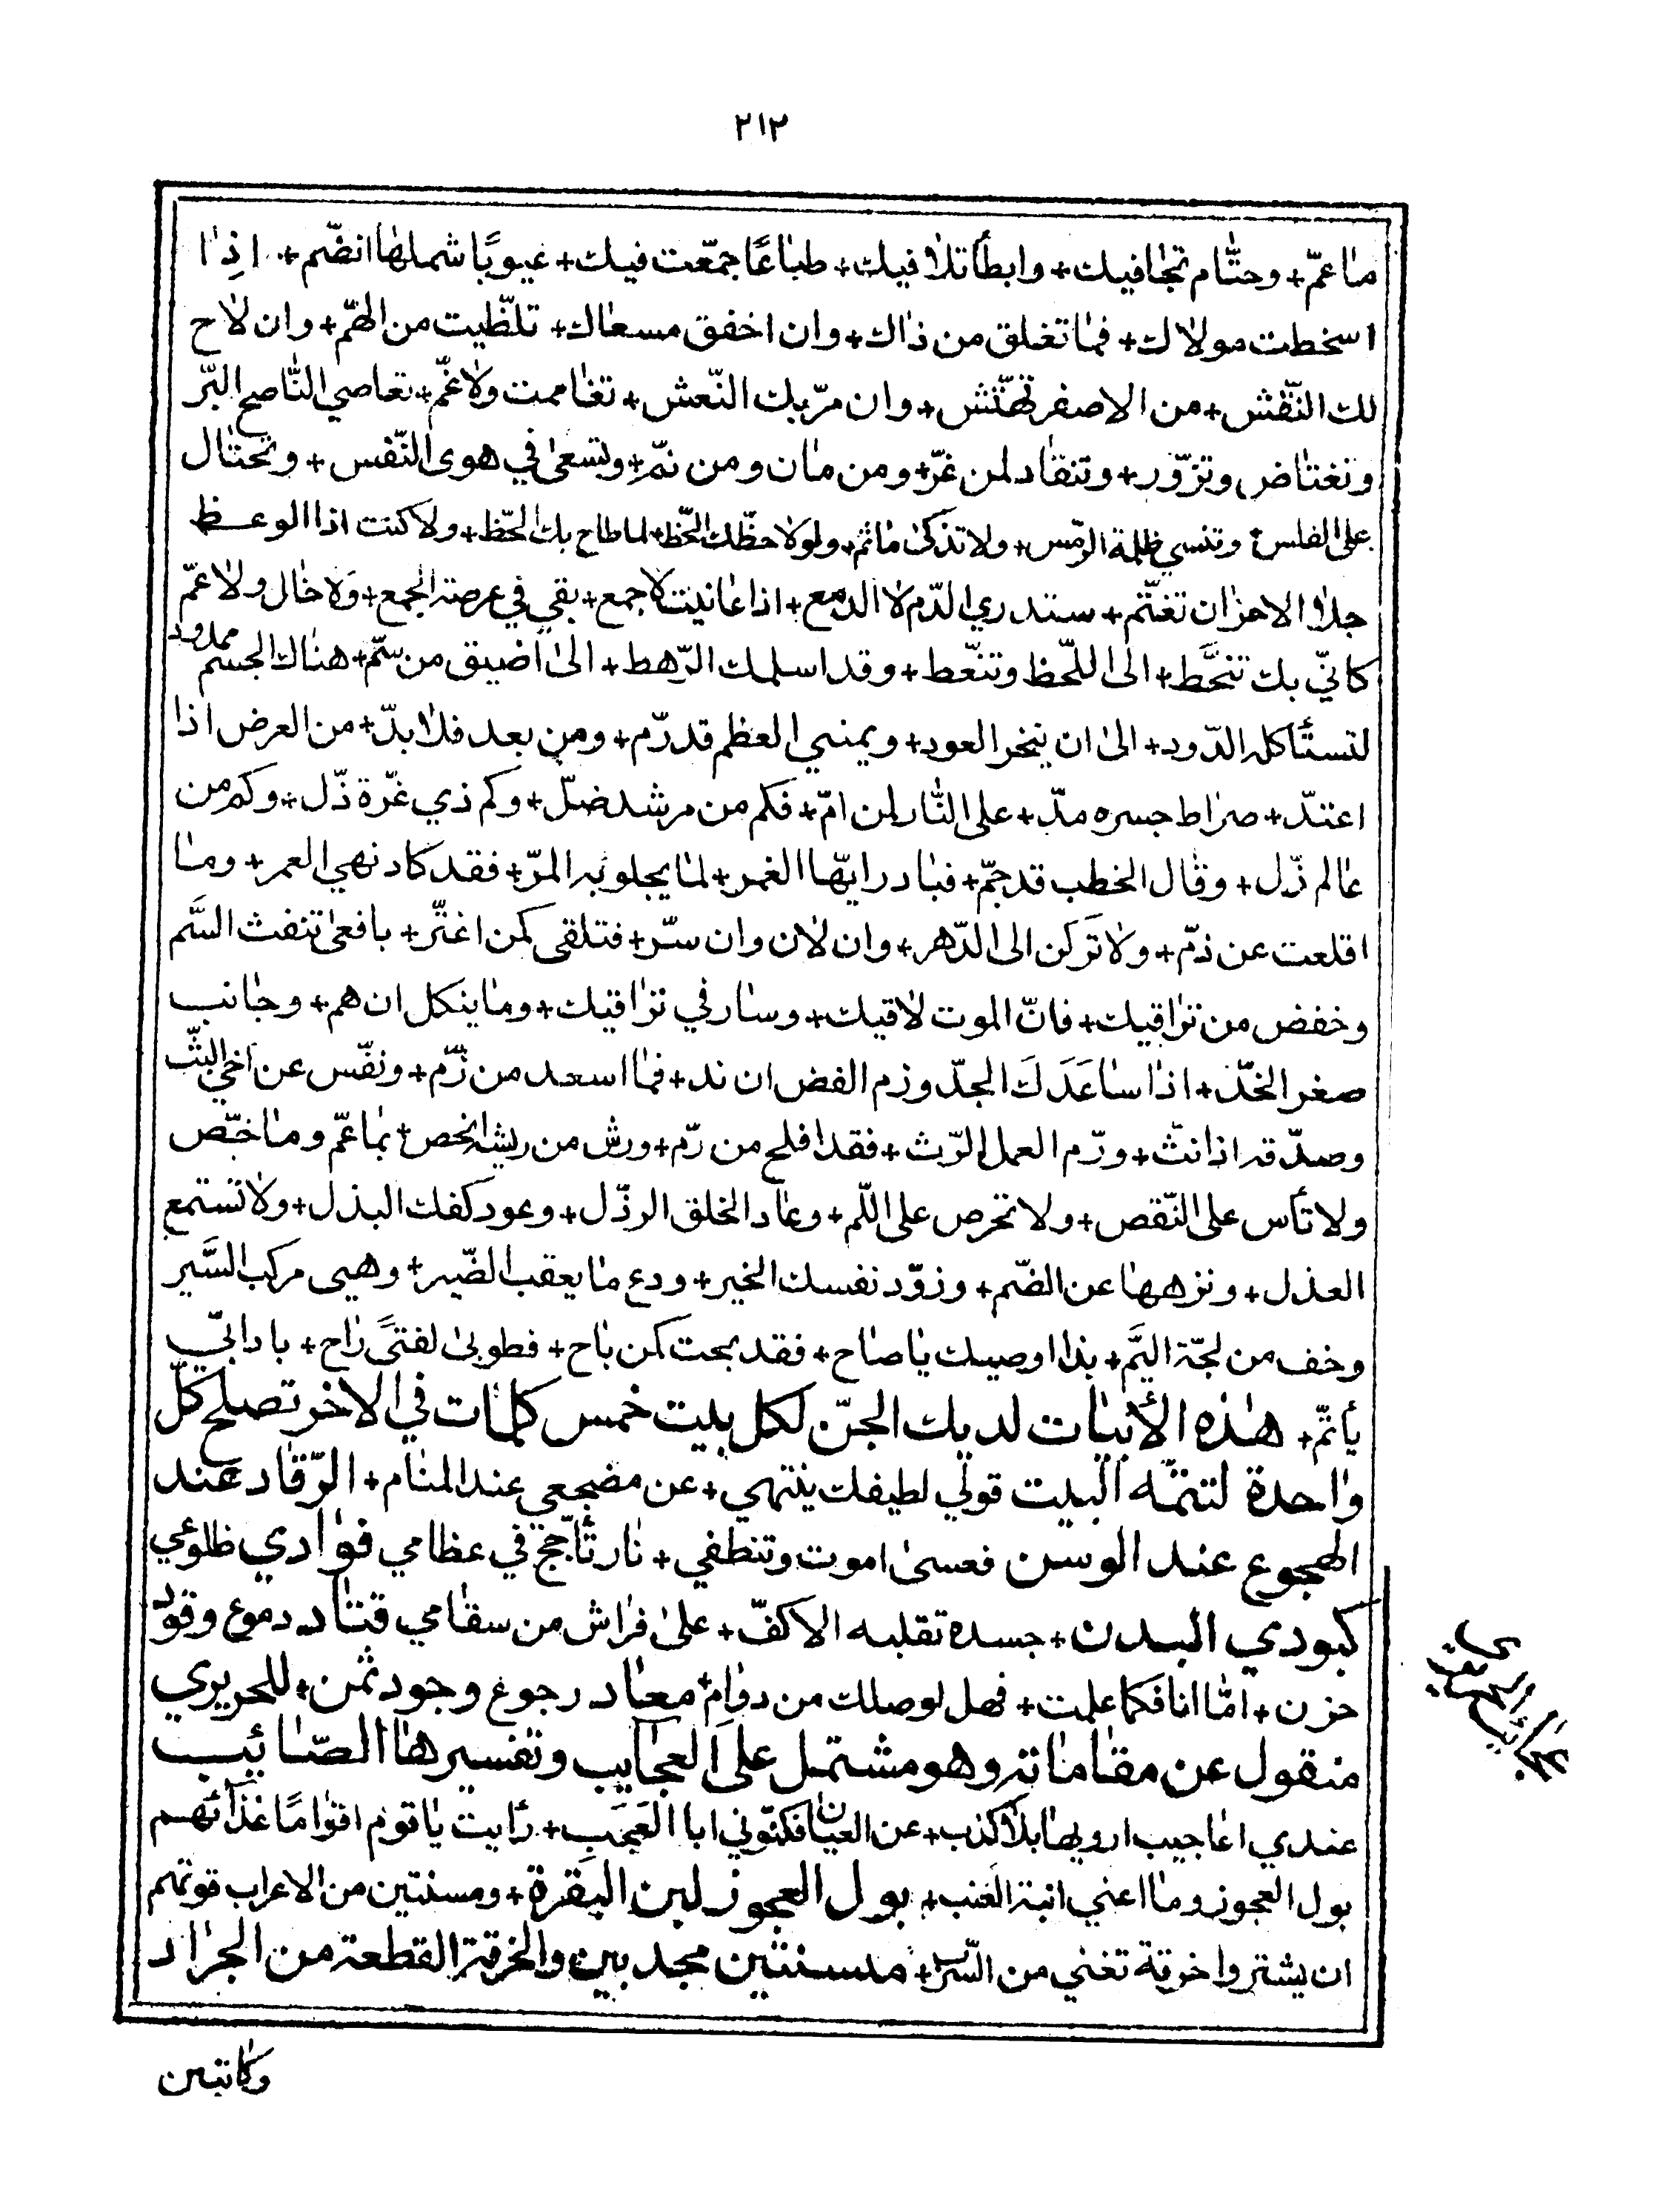 ٢١٢
ما عمّ+ وحتّام تجافيك+ وابطأ تلافيك+ طباعًا جمّعت فيك+ عيوبًا شملها انضّم+ اذا
اسخطت مولاك+ فما تغلق من ذاك+ وان اخفق مسعاك+ تلظّيت من الهّم+ وان لاح
لك النّقش+ من الاصفر تهتّش+ وان مرّ بك النّعش+ تغاممت ولا غمّ+ تعاصي النّاصح البّر
وتغتاض وتزّور+ وتنقاد لمن غرّ+ ومن مان ومن نمّ+ وتسعى في هوى النّفس+ وتحتال
على الفلس+ وتنسي ظلمة الرّمس+ ولا تذكى ما ثم+ ولو لاحظك الحّظ+ لما طاح بك الحّظ+ ولا كنت اذا الوعظ
جلا الاحزان تغتّم+ ستدري الدّم لا الدّمع+ اذا عانيت لا جمع+ بقي في عرصة الجمع+ ولا خال ولا عمّ
كانّي بك تنحّط+ الى اللّحظ وتنّعط+ وقد اسلمك الرّهط+ الى اضيق من سّم+ هناك الجسم ممدود
لتستأكله الدّود+ الى ان ينخر العود+ ويمسي العظم قد رّم+ ومن بعد فلا بدّ+ من العرض اذا
اعتدّ+ صراط جسره مدّ+ على النّار لمن امّ+ فكم من مرشد ضلّ+ وكم ذي غرّة ذّل+ وكم من
عالم زّل+ وقال الخطب قد جمّ+ فبادر ايّها الغمر+ لما يجلو به المرّ+ فقد كاد نهي العمر+ وما
اقلعت عن ذمّ+ ولا تركن الى الدّهر+ وان لان وان سرّ+ فتلقى كمن اغتّر+ بافعى تنفث السّم
وخفض من تراقيك+ فانّ الموت لاقيك+ وسار في تراقيك+ وما ينكل ان هم+ وجانب
صغر الخدّ+ اذا ساعدك الجدّ وزم الفض ان ند+ فما اسعد من زمّ+ ونفّس عن اخي البثّ
وصدّقه اذا نثّ+ ورّم العمل الرّث+ فقد افلح من رّم+ ورش من ريشه انحص+ بما عمّ وما خصّ
ولا تأس على النّقص+ ولا تحرص على اللّم+ وعاد الخلق الرذّل+ وعود كفك البذل+ ولا تستمع
العذل+ ونزهها عن الضّم+ وزوّد نفسك الخير+ ودع ما يعقب الضّير+ وهيى مركب السّير
وخف من لجّة اليّم+ بذا اوصيك يا صاح+ فقد بحت كمن باح+ فطوبى لفتىً راح+ بادابيّ
يأتمّ+ هذه الأبيات لديك الجنّ لكل بيت خمس كلمات في الاخر تصلح كلّ
واحدة لتتمّه البيت قولي لطيفك ينتهي+ عن مضجعي عند المنام+ الرّقاد عند
الهجوع عند الوسن فعسى اموت وتنطفي+ نار تأجّج في عظامي فوادي ظلوعي
كبودي البدن+ جسدة تقلبه الاكفّ+ على فراش من سقامي قتاد دموع وقود
حزن+ امّا انا فكما علمت+ فهل لوصلك من دوام+ معاد رجوع وجود ثمن+ للحريري
منقول عن مقاماته وهو مشتمل على العجايب وتفسيرها الصّائب
عندي اعاجيب ارويها بلا كذب+ عن العيان فكنّوني ابا العجب+ رأيت يا قوم اقوامًا غذائهم
بول العجوز وما اعني ابنة العنب+ بول العجوز لبن البقرة+ ومسنتين من الاعراب قوتهم
ان يشتروا خرقة تغني من السّرب+ مسنتين مجدبين والخرقة القطعة من الجراد
وكاتبين